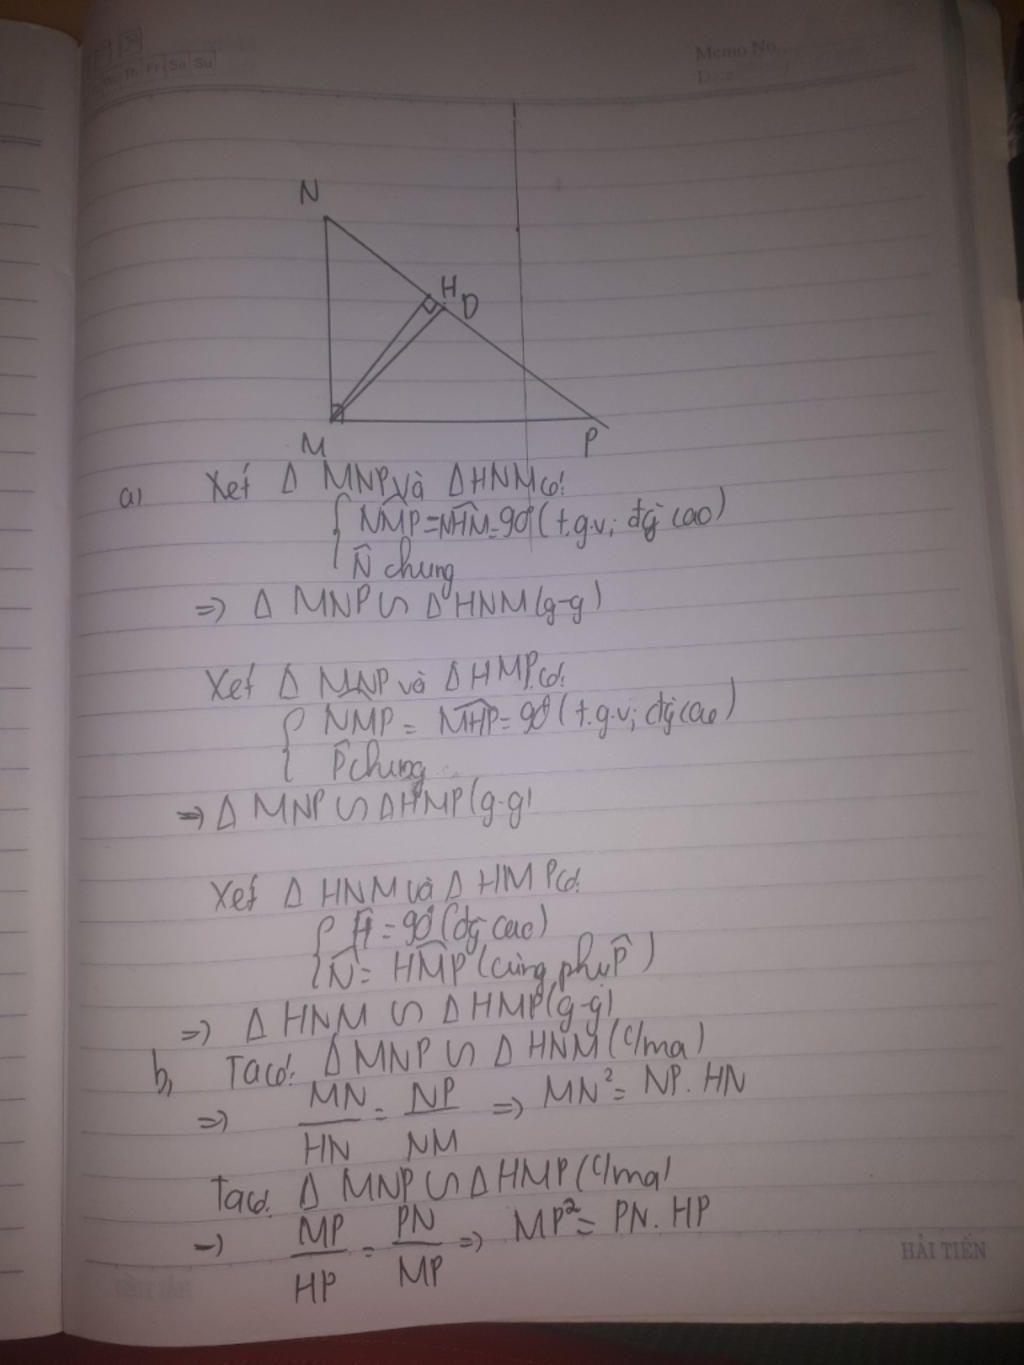 Th Fr Sa Su
Memo No.
Date
N
H
D
M
P
a) Xét Δ MNP và Δ HNM có:
NMP = NHM = 90° (t.g.v; đg cao)
N̂ chung
=> Δ MNP ∽ Δ HNM (g-g)
Xét Δ MNP và Δ HMP có:
NMP = MHP = 90° (t.g.v; đg cao)
P̂ chung
=> Δ MNP ∽ Δ HMP (g-g)
Xét Δ HNM và Δ HMP có:
Ĥ = 90° (đg cao)
N̂ = HMP (cùng phụ P̂)
=> Δ HNM ∽ Δ HMP (g-g)
b, Ta có: Δ MNP ∽ Δ HNM (c/ma)
=> MN/HN = NP/NM => MN² = NP. HN
Ta có: Δ MNP ∽ Δ HMP (c/ma)
=> MP/HP = PN/MP => MP² = PN. HP
HẢI TIẾN